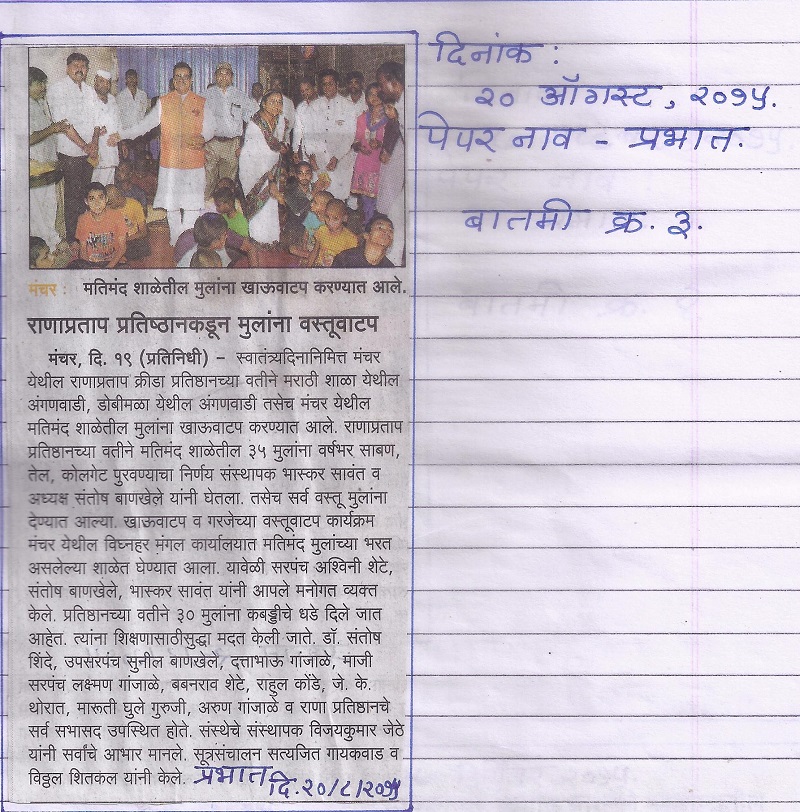 मंचर : मतिमंद शाळेतील मुलांना खाऊवाटप करण्यात आले.
राणाप्रताप प्रतिष्ठानकडून मुलांना वस्तूवाटप
मंचर, दि. १९ (प्रतिनिधी) – स्वातंत्र्यदिनानिमित्त मंचर
येथील राणाप्रताप क्रीडा प्रतिष्ठानच्या वतीने मराठी शाळा येथील
अंगणवाडी, डोबीमळा येथील अंगणवाडी तसेच मंचर येथील
मतिमंद शाळेतील मुलांना खाऊवाटप करण्यात आले. राणाप्रताप
प्रतिष्ठानच्या वतीने मतिमंद शाळेतील ३५ मुलांना वर्षभर साबण,
तेल, कोलगेट पुरवण्याचा निर्णय संस्थापक भास्कर सावंत व
अध्यक्ष संतोष बाणखेले यांनी घेतला. तसेच सर्व वस्तू मुलांना
देण्यात आल्या. खाऊवाटप व गरजेच्या वस्तूवाटप कार्यक्रम
मंचर येथील विघ्नहर मंगल कार्यालयात मतिमंद मुलांच्या भरत
असलेल्या शाळेत घेण्यात आला. यावेळी सरपंच अश्विनी शेटे,
संतोष बाणखेले, भास्कर सावंत यांनी आपले मनोगत व्यक्त
केले. प्रतिष्ठानच्या वतीने ३० मुलांना कबड्डीचे धडे दिले जात
आहेत. त्यांना शिक्षणासाठीसुद्धा मदत केली जाते. डॉ. संतोष
शिंदे, उपसरपंच सुनील बाणखेले, दत्ताभाऊ गांजाळे, माजी
सरपंच लक्ष्मण गांजाळे, बबनराव शेटे, राहुल कोंडे, जे. के.
थोरात, मारूती घुले गुरुजी, अरुण गांजाळे व राणा प्रतिष्ठानचे
सर्व सभासद उपस्थित होते. संस्थेचे संस्थापक विजयकुमार जेठे
यांनी सर्वांचे आभार मानले. सूत्रसंचालन सत्यजित गायकवाड व
विठ्ठल शितकल यांनी केले. प्रभात दि. २०/८/२०१५
दिनांक :
२० ऑगस्ट, २०१५.
पेपर नाव - प्रभात.
बातमी क्र. ३.